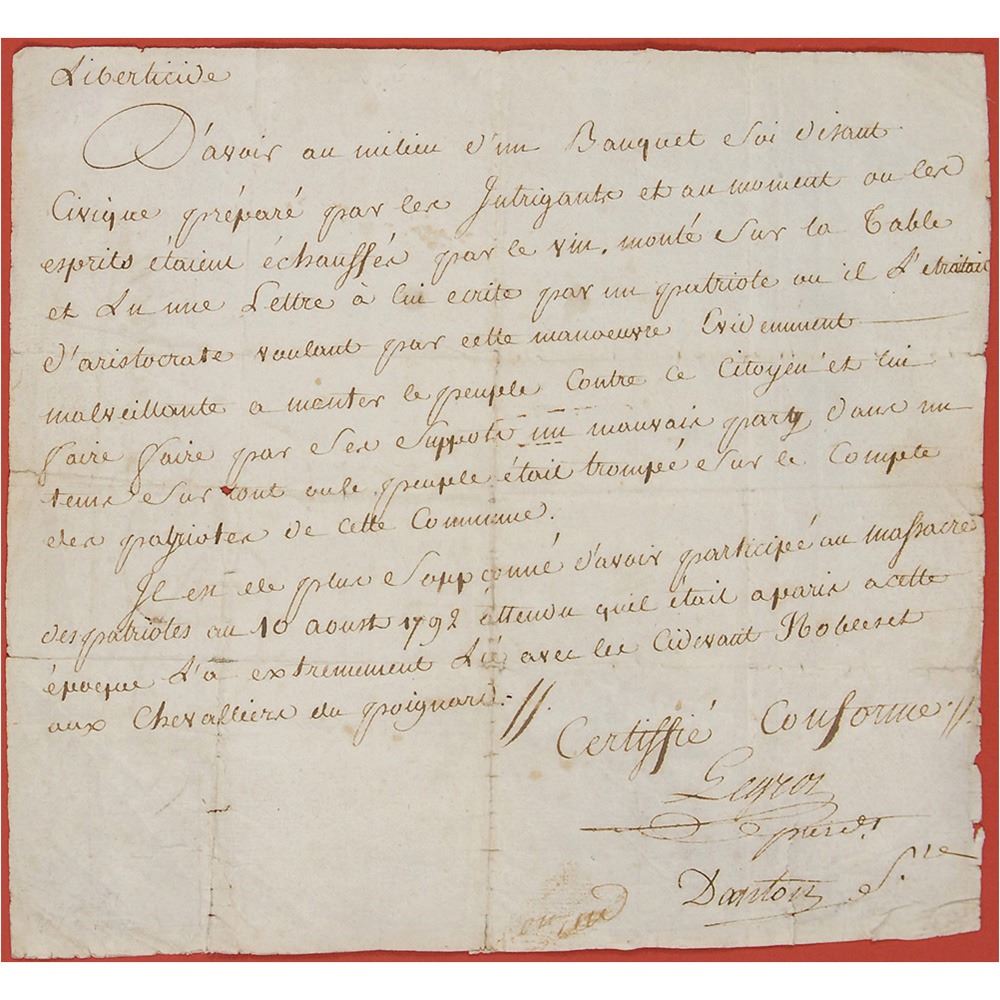 Liberticide
D'avoir au milieu d'un Banquet Soi disant
Civique préparé par les Intrigants et au moment ou les
esprits étaient échauffés par le vin, monté Sur la Table
et Lu une Lettre à lui ecrite par un patriote ou il L'etraitait
d'aristocrate voulant par cette manoeuvre Evidemment
malveillante a monter le peuple Contre ce Citoyen et lui
faire faire par Ses Suppots un mauvais party dans un
tems Sur tout ou le peuple était trompé Sur le Compte
des patriotes de cette Commune.
Il est de plus Soupçonné d'avoir participé au massacre
des patriotes au 10 aoust 1792 attendu quil était a paris a cette
époque L'a extremement Lié avec les Cidevant Nobles et
aux Chevalliers du poignard. //.
Certiffié Conforme //.
Legros
presdt
Danton S.re